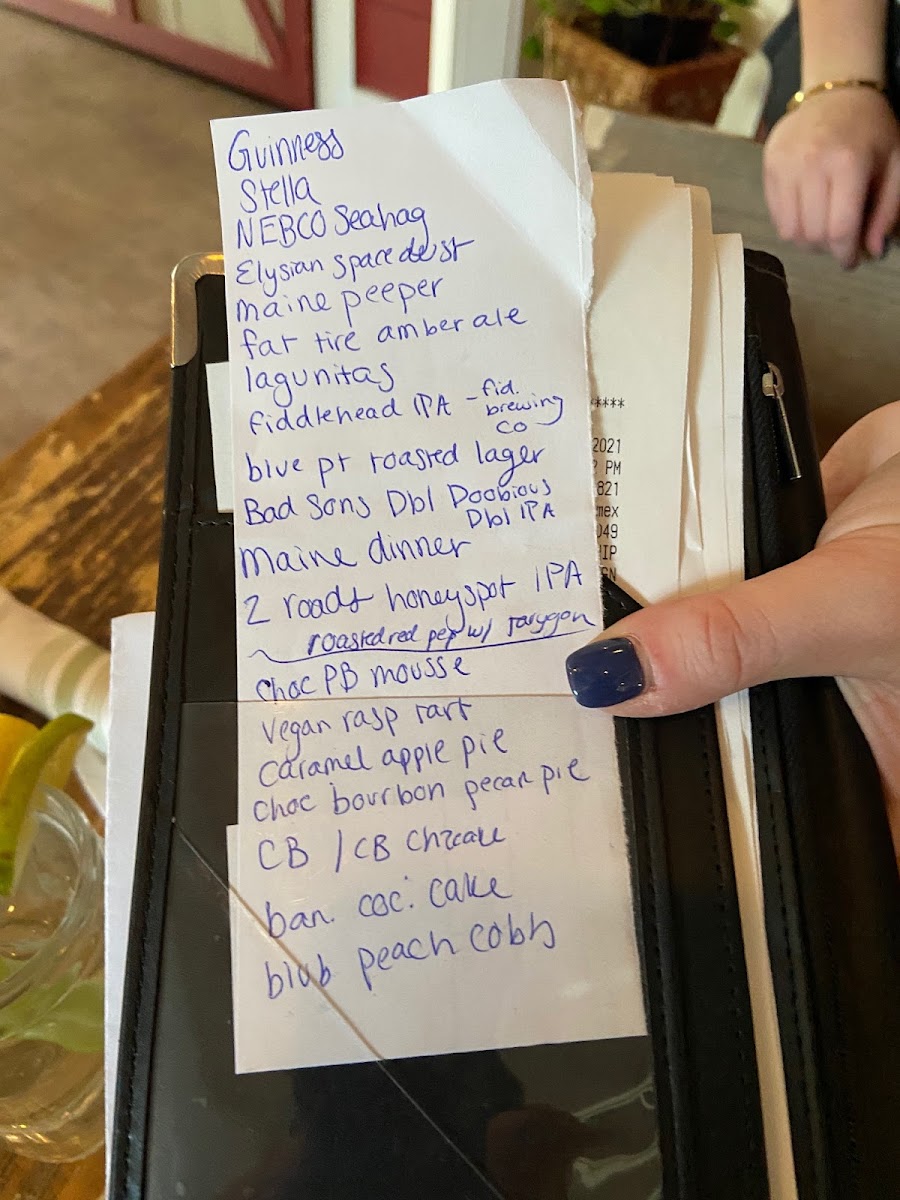 Guinness
Stella
NEBCO Seahag
Elysian space dust
maine peeper
fat tire amber ale
lagunitas
fiddlehead IPA - fid.
brewing
co
blue pt roasted lager
Bad Sons Dbl Doobious
Dbl IPA
Maine dinner
2 roads honeyspot IPA
roasted red pep w/ tarygon
choc PB mousse
vegan rasp tart
caramel apple pie
choc bourbon pecan pie
CB / CB chzcake
ban. coc. cake
blub peach cobb
****
2021
PM
821
mex
049
IP